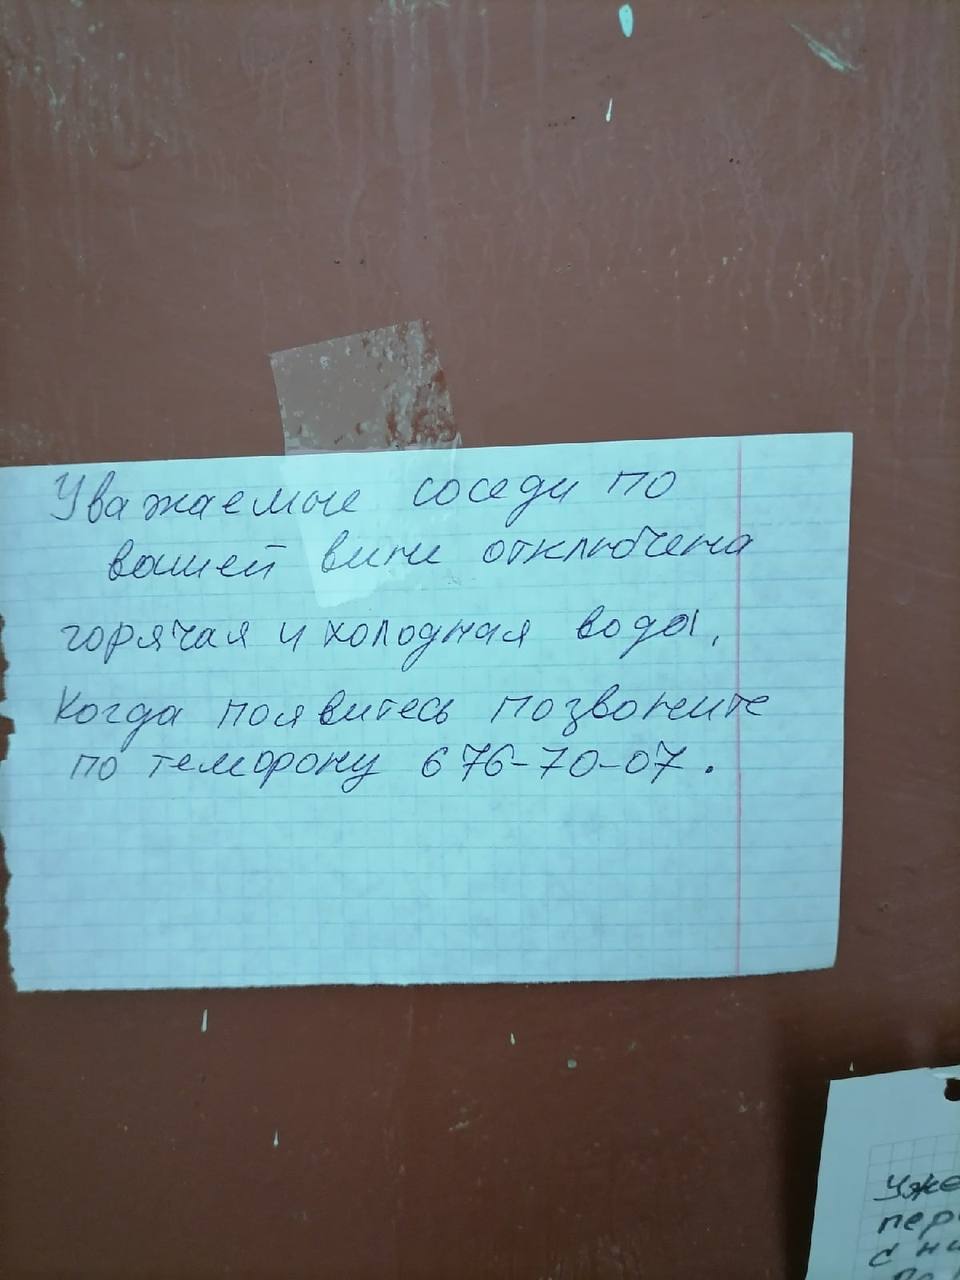 Уважаемые соседи по
вашей вине отключена
горячая и холодная воды,
Когда появитесь позвоните
по телефону 676-70-07.
Уже
пер
с ни